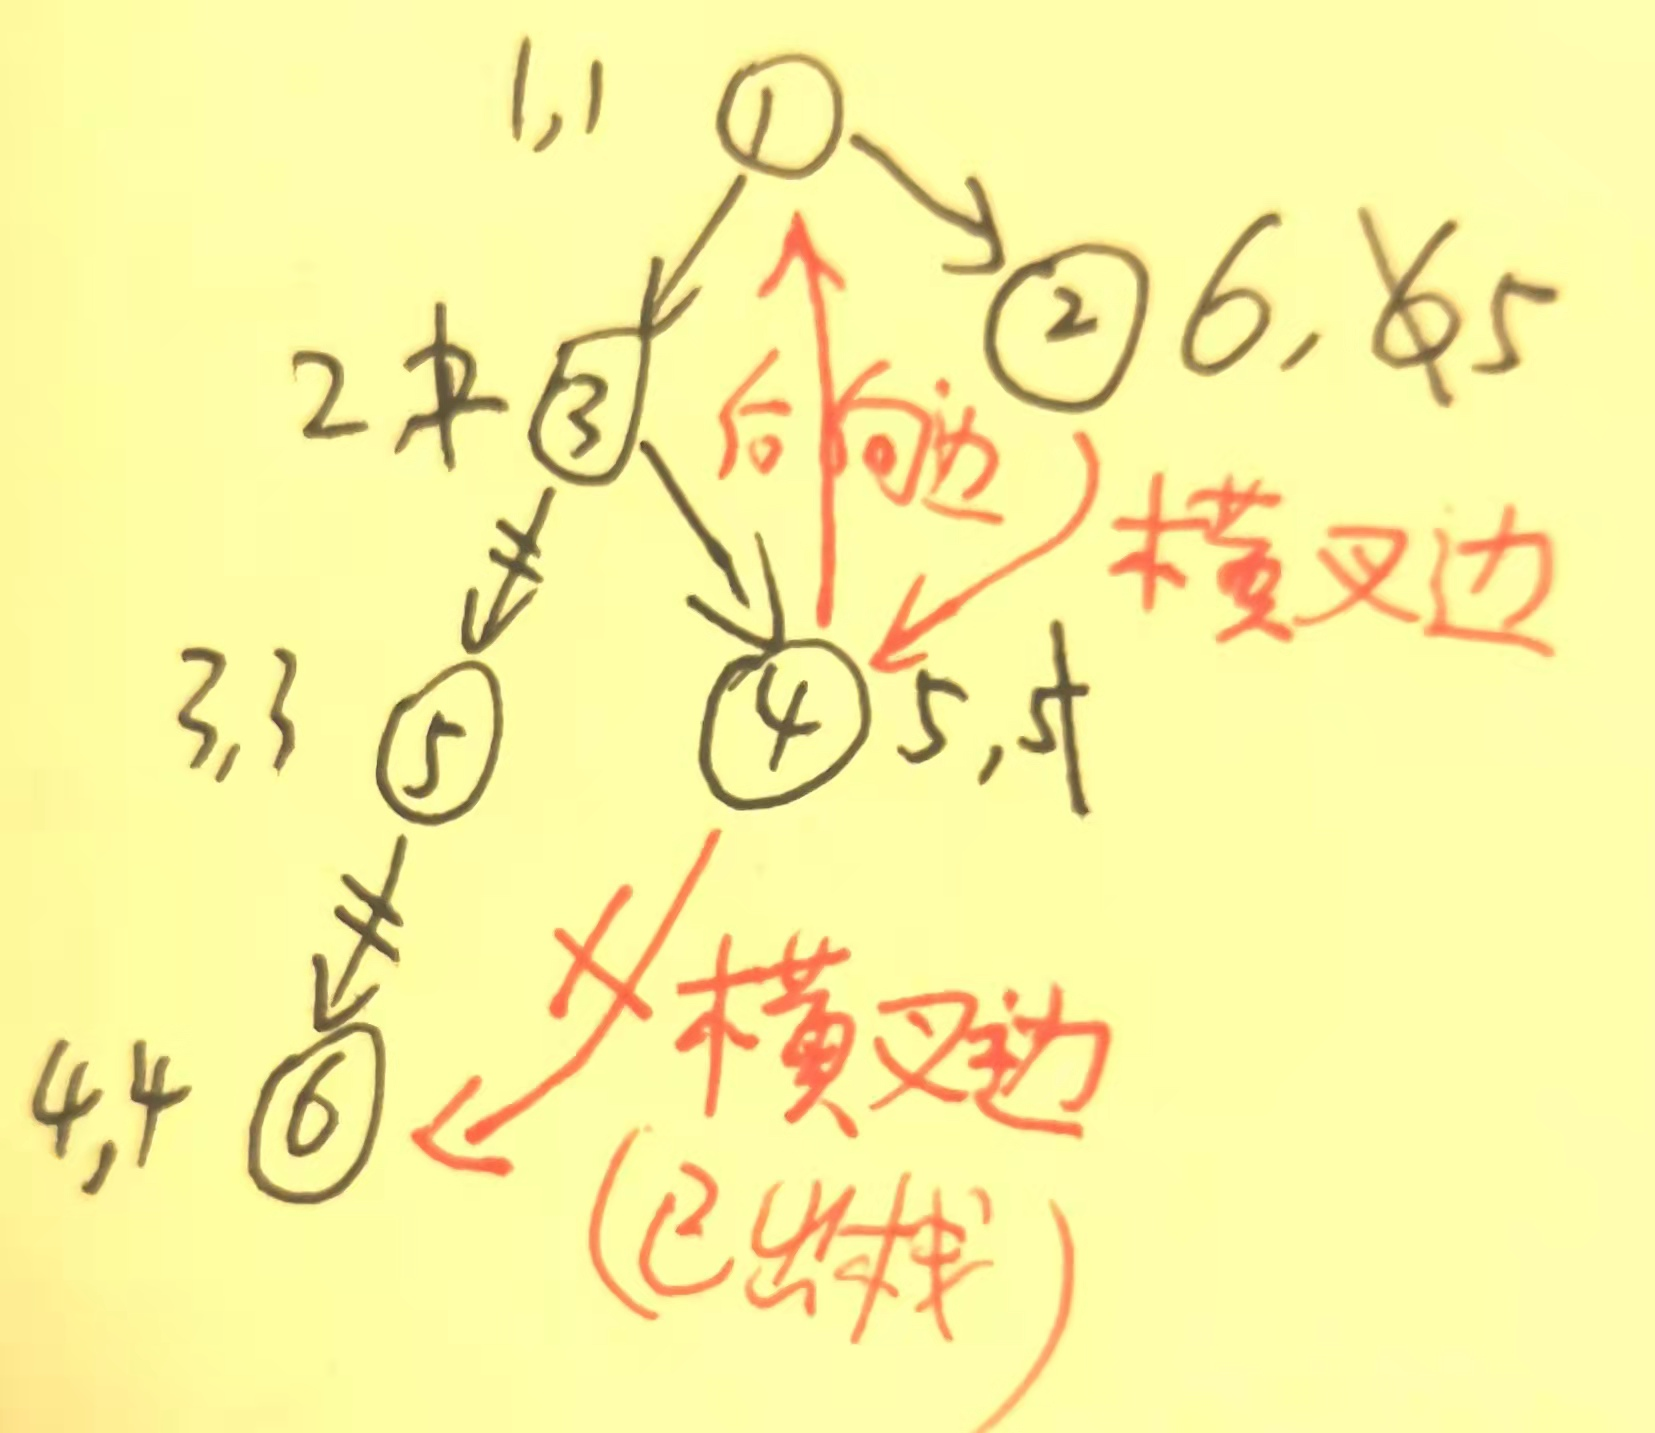 1,1
①
②
6,6 5
2,2
③
后向边
横叉边
3,3
⑤
④
5,5
4,4
⑥
横叉边
(已出栈)